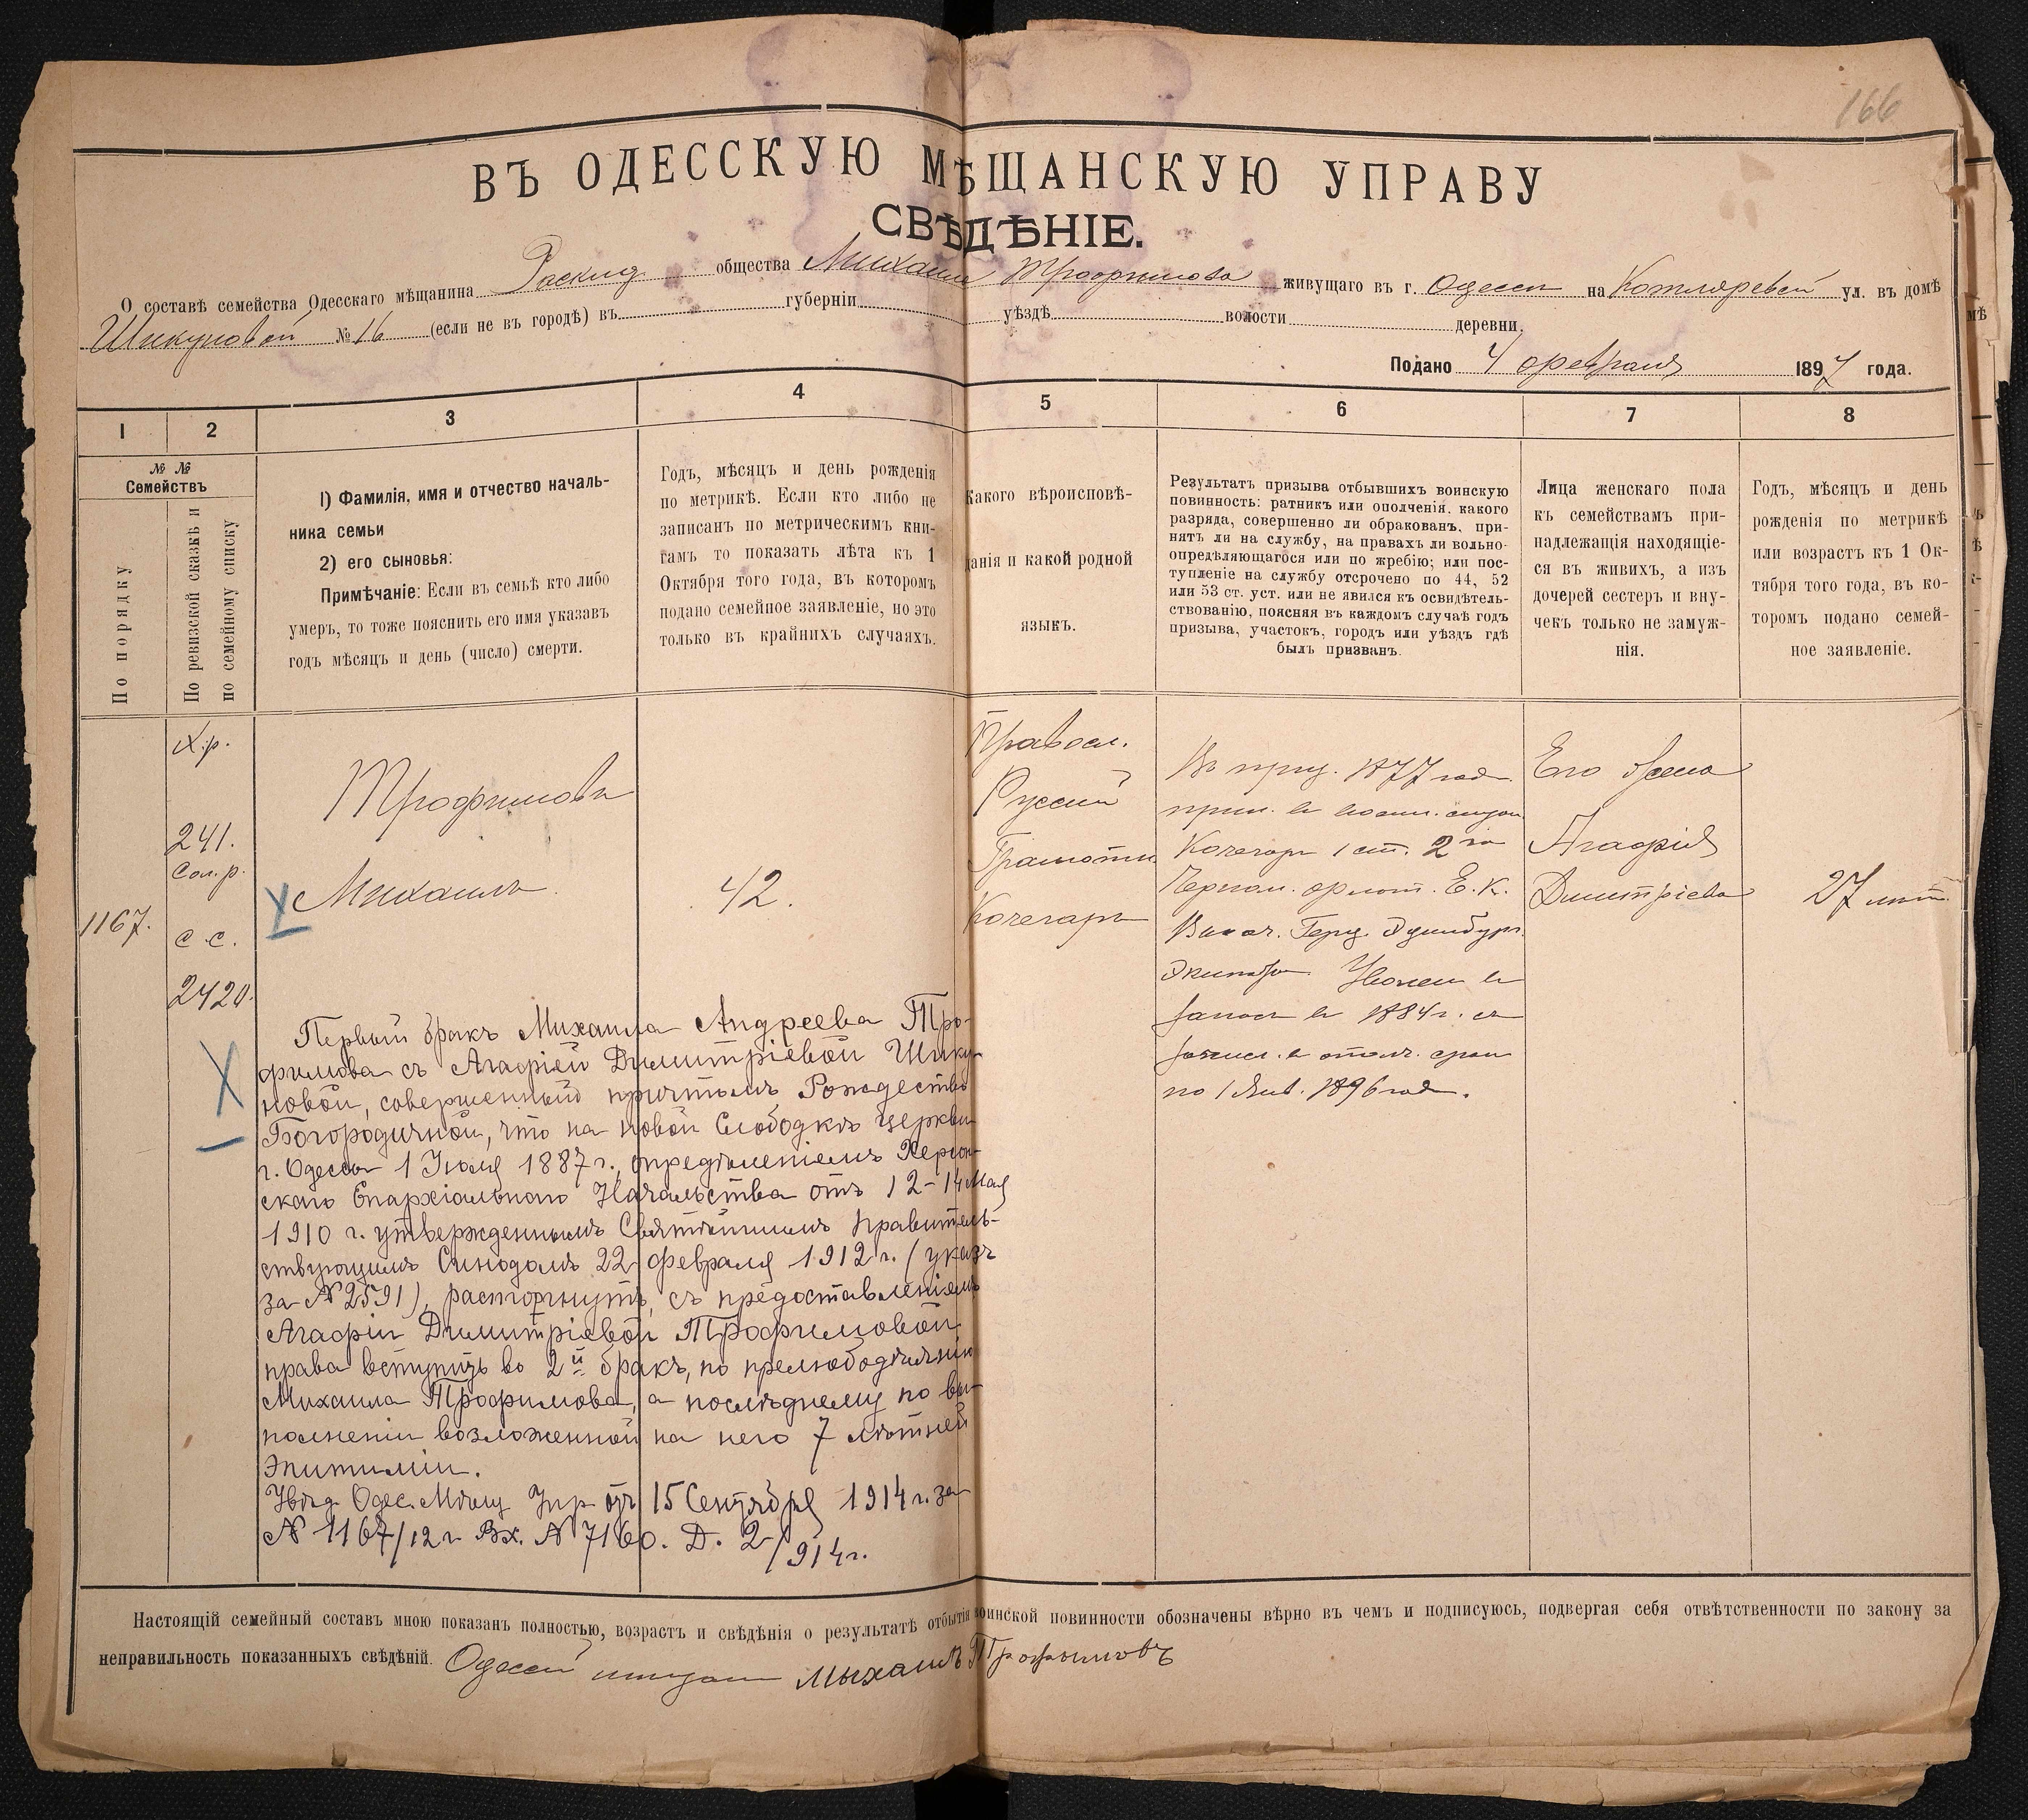 166
ВЪ ОДЕССКУЮ МѢЩАНСКУЮ УПРАВУ
СВѢДѢНІЕ.
О составѣ семейства Одесскаго мѣщанина Раскид. общества Михаила Трофимова живущаго въ г. Одессѣ на Котляревской ул. въ домѣ
Шикуновой № 16 (если не въ городѣ) въ губерніи уѣздѣ волости деревни.
Подано 4 февраля 1897 года.
1 2 3 4 5 6 7 8
№ №
Семействъ
По порядку
По ревизской сказкѣ и
по семейному списку
1) Фамилія, имя и отчество началь-
ника семьи
2) его сыновья:
Примѣчаніе: Если въ семьѣ кто либо
умеръ, то тоже пояснить его имя указавъ
годъ мѣсяцъ и день (число) смерти.
Годъ, мѣсяцъ и день рожденія
по метрикѣ. Если кто либо не
записанъ по метрическимъ кни-
гамъ то показать лѣта къ 1
Октября того года, въ которомъ
подано семейное заявленіе, но это
только въ крайнихъ случаяхъ.
Какого вѣроисповѣ-
данія и какой родной
языкъ.
Результатъ призыва отбывшихъ воинскую
повинность: ратникъ или ополченія, какого
разряда, совершенно ли обракованъ, при-
нятъ ли на службу, на правахъ ли вольно-
опредѣляющагося или по жребію; или пос-
тупленіе на службу отсрочено по 44, 52
или 53 ст. уст. или не явился къ освидѣтель-
ствованію, поясняя въ каждомъ случаѣ годъ
призыва, участокъ, городъ или уѣздъ гдѣ
былъ призванъ.
Лица женскаго пола
къ семействамъ при-
надлежащія находящіе-
ся въ живихъ, а изъ
дочерей сестеръ и вну-
чекъ только не замуж-
нія.
Годъ, мѣсяцъ и день
рожденія по метрикѣ
или возрастъ къ 1 Ок-
тября того года, въ ко-
торомъ подано семей-
ное заявленіе.
1167.
Х.р.
241.
Сол.р.
с.с.
2420.
Трофимовъ
Михаилъ.
42.
Правосл.
Русскій
Грамотн.
Кочегаръ
Въприз. 1877 года
прин. въ воен. службу
Кочегаръ 1 ст. 2го
Черном. флот. Е.К.
Высоч. Герц. Эдинбург.
Экипажа. Уволен въ
запасъ въ 1884 г. съ
зачисл. въ
по 1 Янв. 1896 года.
Его жена
Агафія
Дмитріева
27 лѣтъ
Первый бракъ Михаила Андреева Тро-
фимова съ Агафіей Димитріевой Шику-
новой, совершенный причтомъ Рождество
Богородичной, что на новой Слободкѣ церкви
г. Одессы 1 Іюля 1887 г., опредѣленіемъ Херсон-
скаго Епархіальнаго Начальства отъ 12-14 Мая
1910 г. утвержденнымъ Святѣйшимъ Правитель-
ствующимъ Синодомъ 22 февраля 1912 г. (указъ
за № 2591), расторгнутъ, съ предоставленіемъ
Агафіи Димитріевой Трофимовой
права вступить во 2й бракъ, по прелюбодѣянію
Михаила Трофимова, а послѣднему по вы-
полненіи возложенной на него 7 лѣтней
эпитиміи.
Увѣд. Одес. Мѣщ. Упр. отъ 15 Сентября 1914 г. за
№ 1167/12 г. Вх. № 7160. Д. 2/914 г.
Настоящій семейный составъ мною показанъ полностью, возрастъ и свѣдѣнія о результатѣ отбытія воинской повинности обозначены вѣрно въ чемъ и подписуюсь, подвергая себя отвѣтственности по закону за
неправильность показанныхъ свѣдѣній. Одесскій мѣщан. Мыхаилъ Трофымовъ